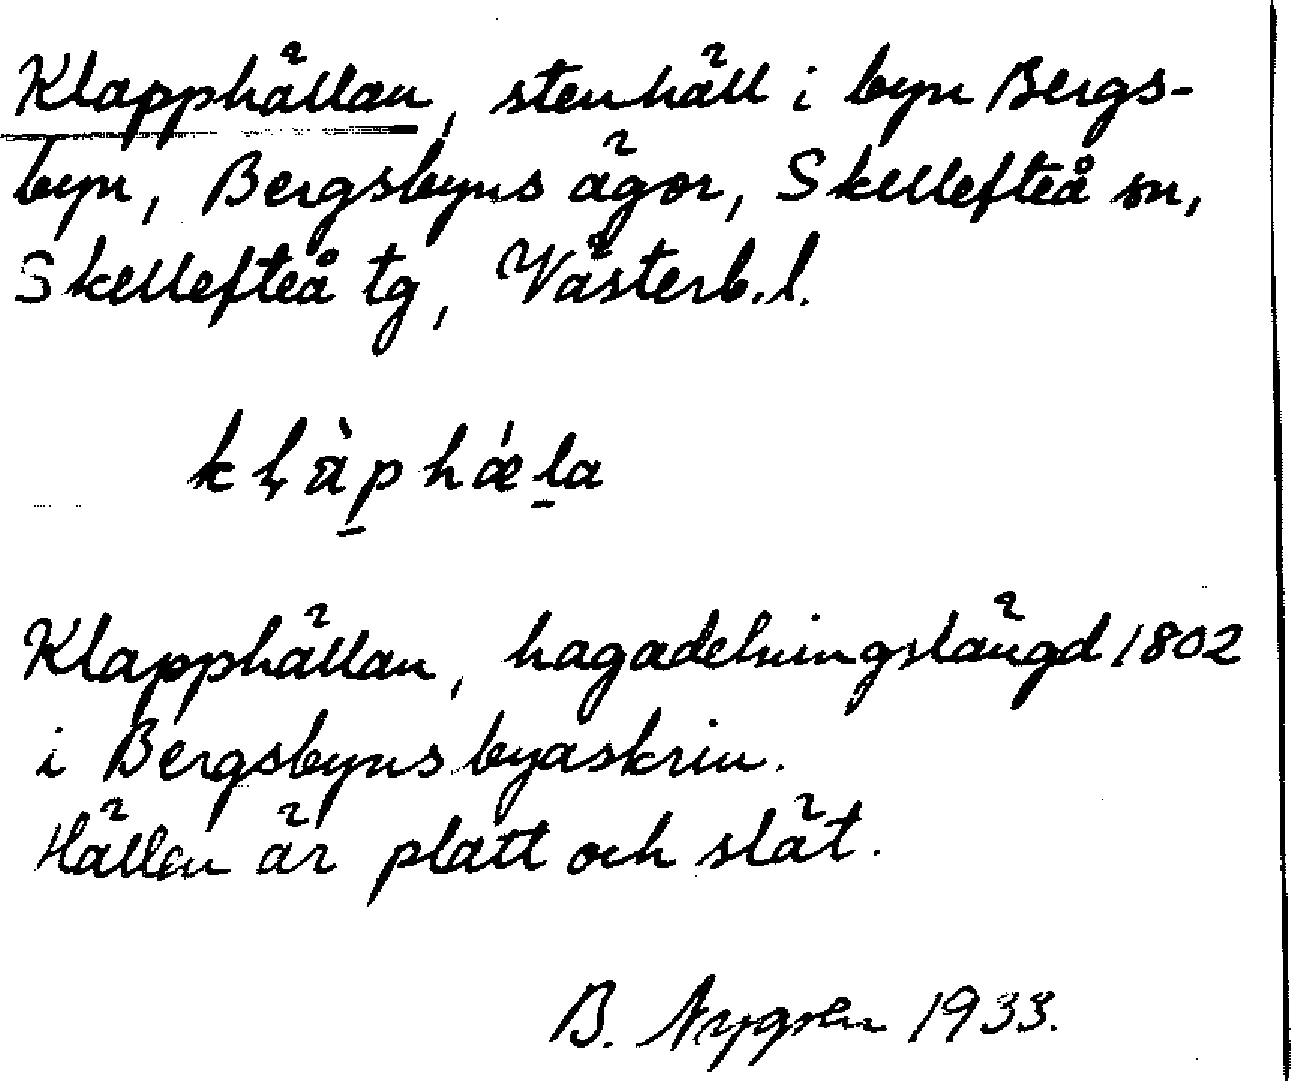 Klapphällan, stenhäll i byn Bergs-
byn, Bergsbyns ägor, Skellefteå sn,
Skellefteå tg, Västerb. l.
kḷàp̱hǽḻa
Klapphällan, hagadelningslängd 1802
i Bergsbyns byaskrin.
Hällen är platt och slät.
B. Nygren 1933.